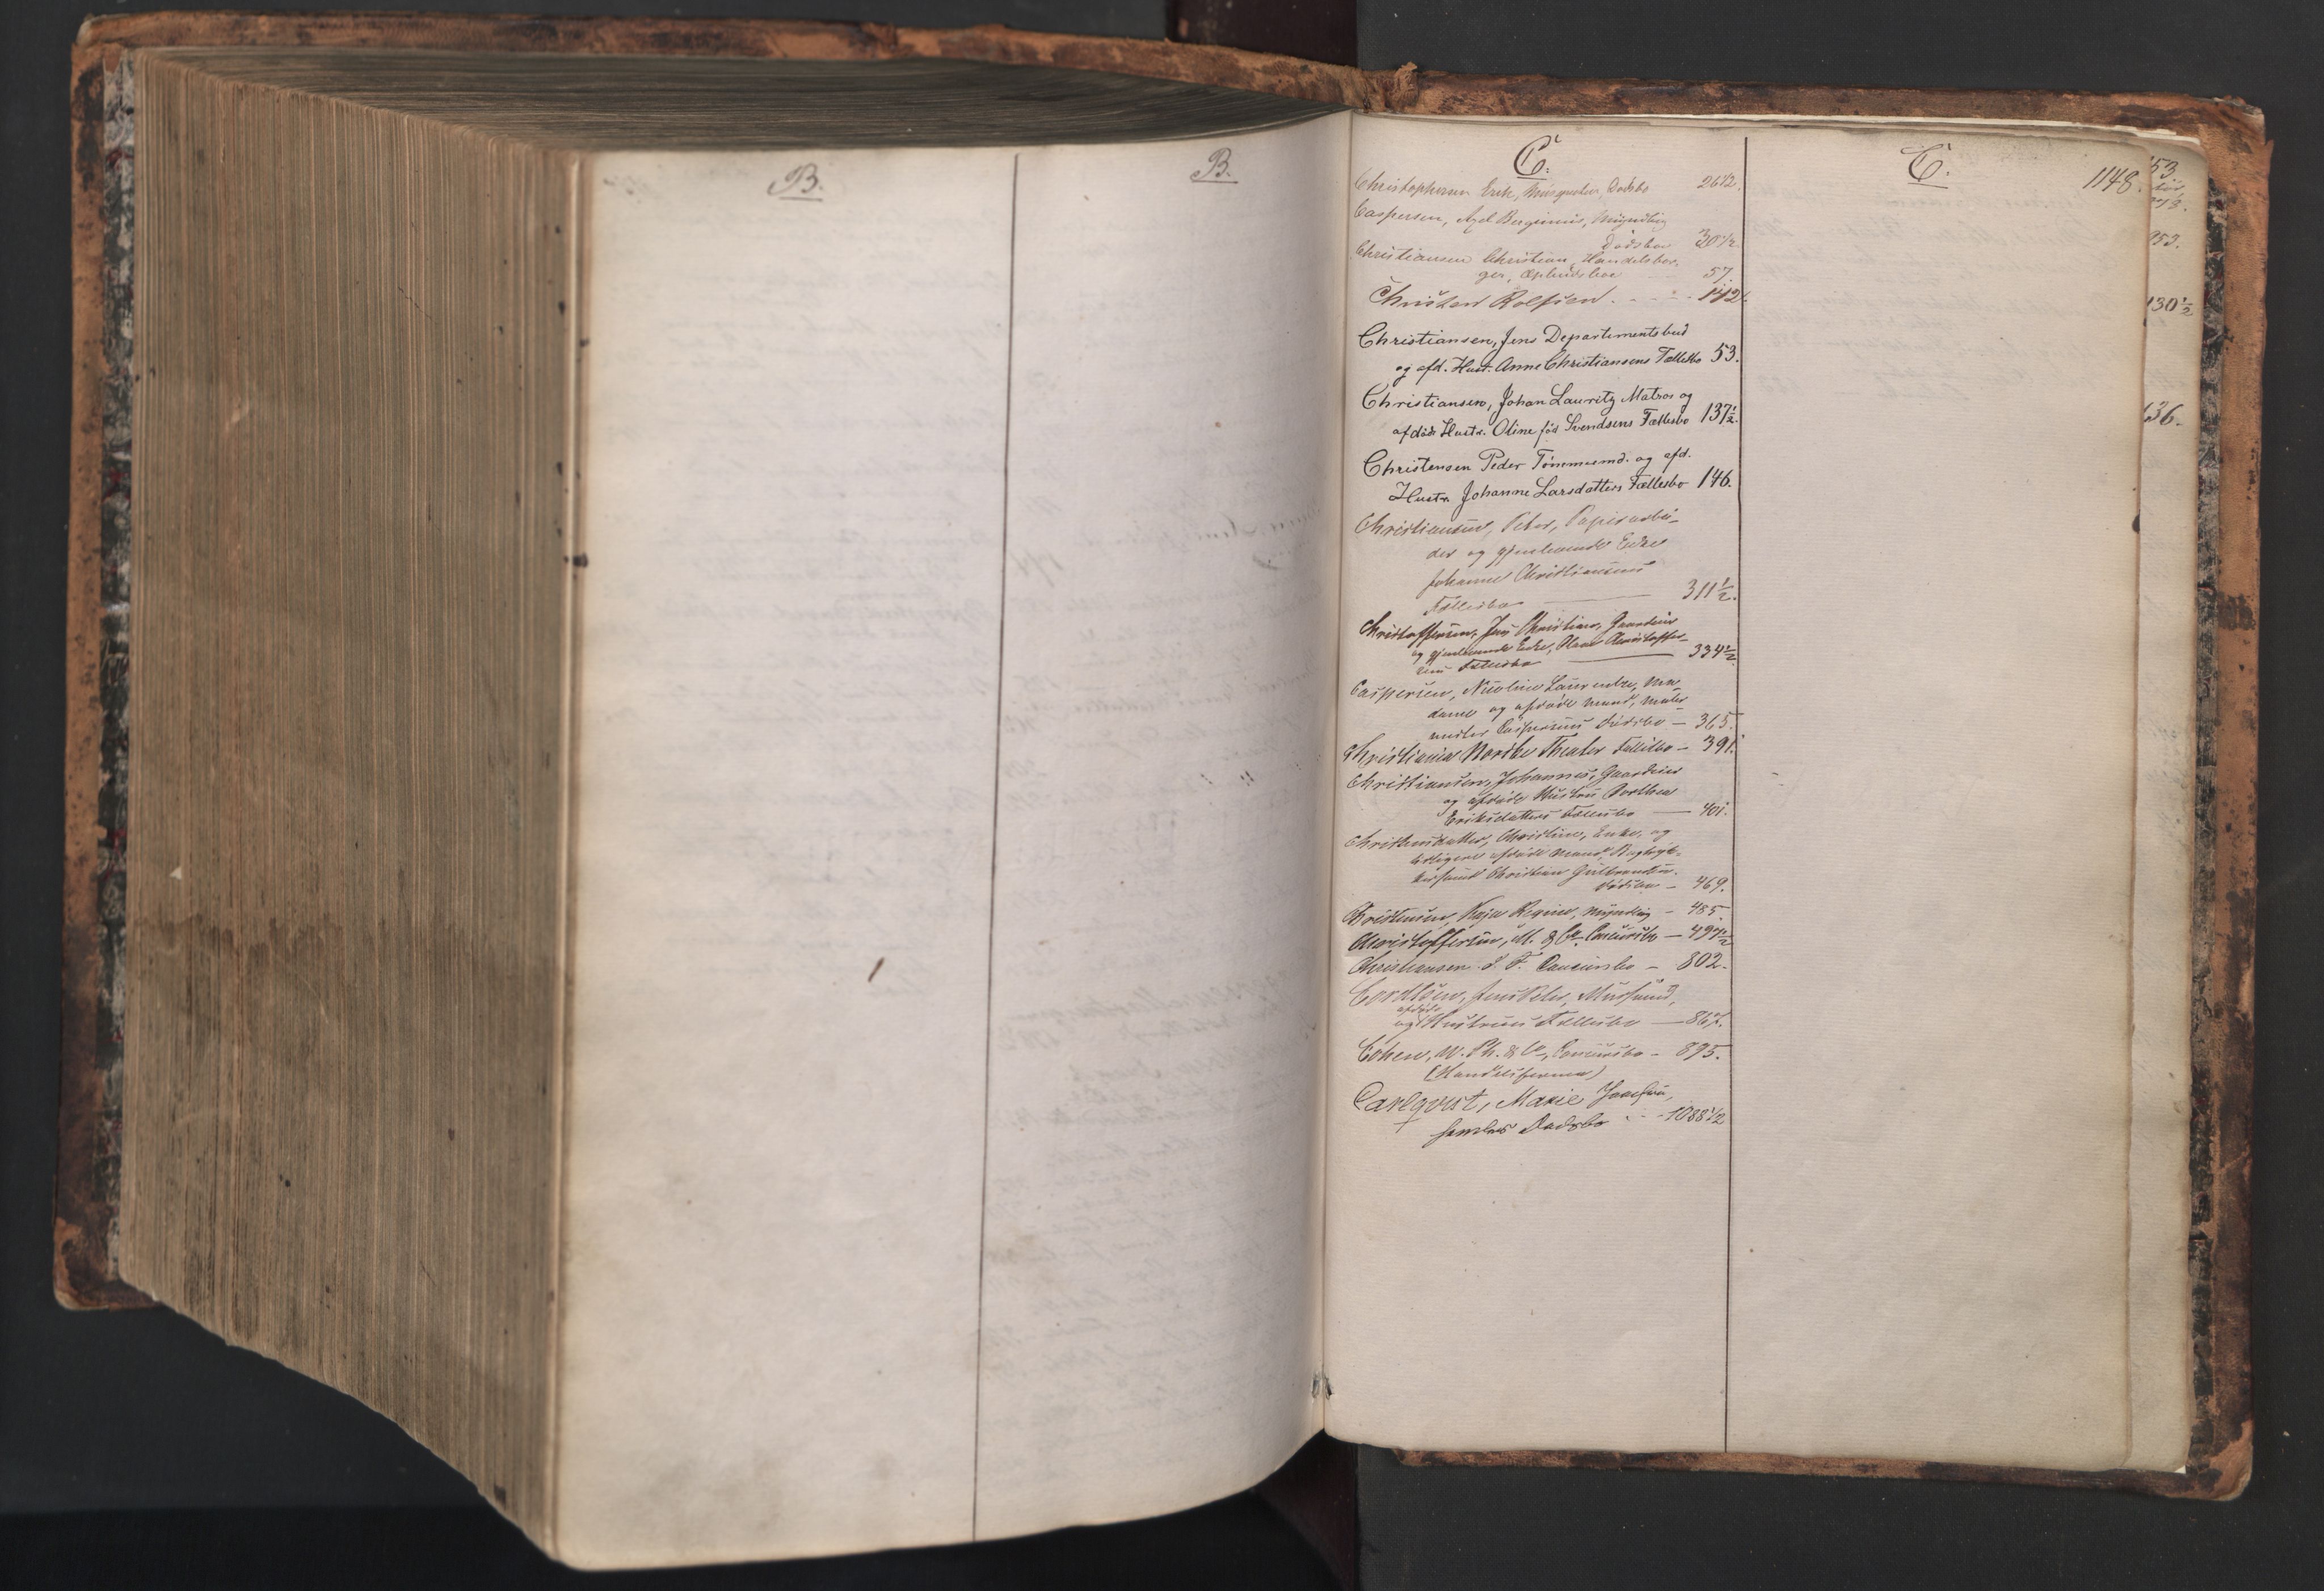 B.
B.
C.
C.
1148.
Christophersen Erik, Dødsbo 26 1/2.
Caspersen, Axel Bergenius, Myndling
Dødsboe 30 1/2.
Christiansen Christian, Handelsbor-
ger, Opbudsboe 57.
Christen Rolfsen . - - - - 142.
Christiansen, Jens Departementsbud
og afd. Hust. Anne Christiansens Fællesbo 53.
Christiansen, Johan Lauritz Matros og
afdøde Hustr. Oline fød Svendsens Fællesbo 137 1/2.
Christensen Peder Tømmermd. og afd.
Hustr. Johanne Larsdatters Fællesbo 146.
Christiansen, Peter, Papirarbei-
der og gjenlevende Enke
Johanne Christiansens
Fællesbo — 311 1/2.
Christoffersen, Jens Christian, Gaardeier
og gjenlevende Enke, Christoffer-
sens Fællesbo — 334 1/2.
Caspersen, Nicoline Laurentze, Ma-
dame og afdøde Mand, Maler
mester Caspersens Dødsbo — 365.
Christiania Norske Theater Fallitbo — 391.
Christiansen, Johannes, Gaardeier
og afdøde Hustru Dorthea
Eriksdatters Fællesbo — 401.
Christensdatter, Christine, Enke, og
tidligere afdøde Mand, Rugtryk-
Christian Gulbrandsen.
Dødsbo — 469.
Christensen, Kaja Regine, Myndling — 485.
Christoffersen, M. & Co. Concursbo — 494 1/2
Christiansen J. F. Concursbo — 802.
Cordtsen, Jens Peter, Mursvend,
afdøde
og Hustrues Fællesbo — 867.
Cohen, W. Ph. & Co, Concursbo — 895.
(Handelsfirma)
Carlqvist, Marie Josefine,
Dødsbo - - 1088 1/2
53
953.
130 1/2
136.